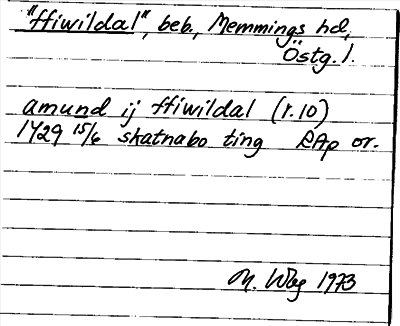 "ffiwildal", beb., Memmings hd,
Östg. l.
amund ij ffiwildal (r.10)
1429 15/6 skatnabo ting RAp or.
M. Wbg 1973